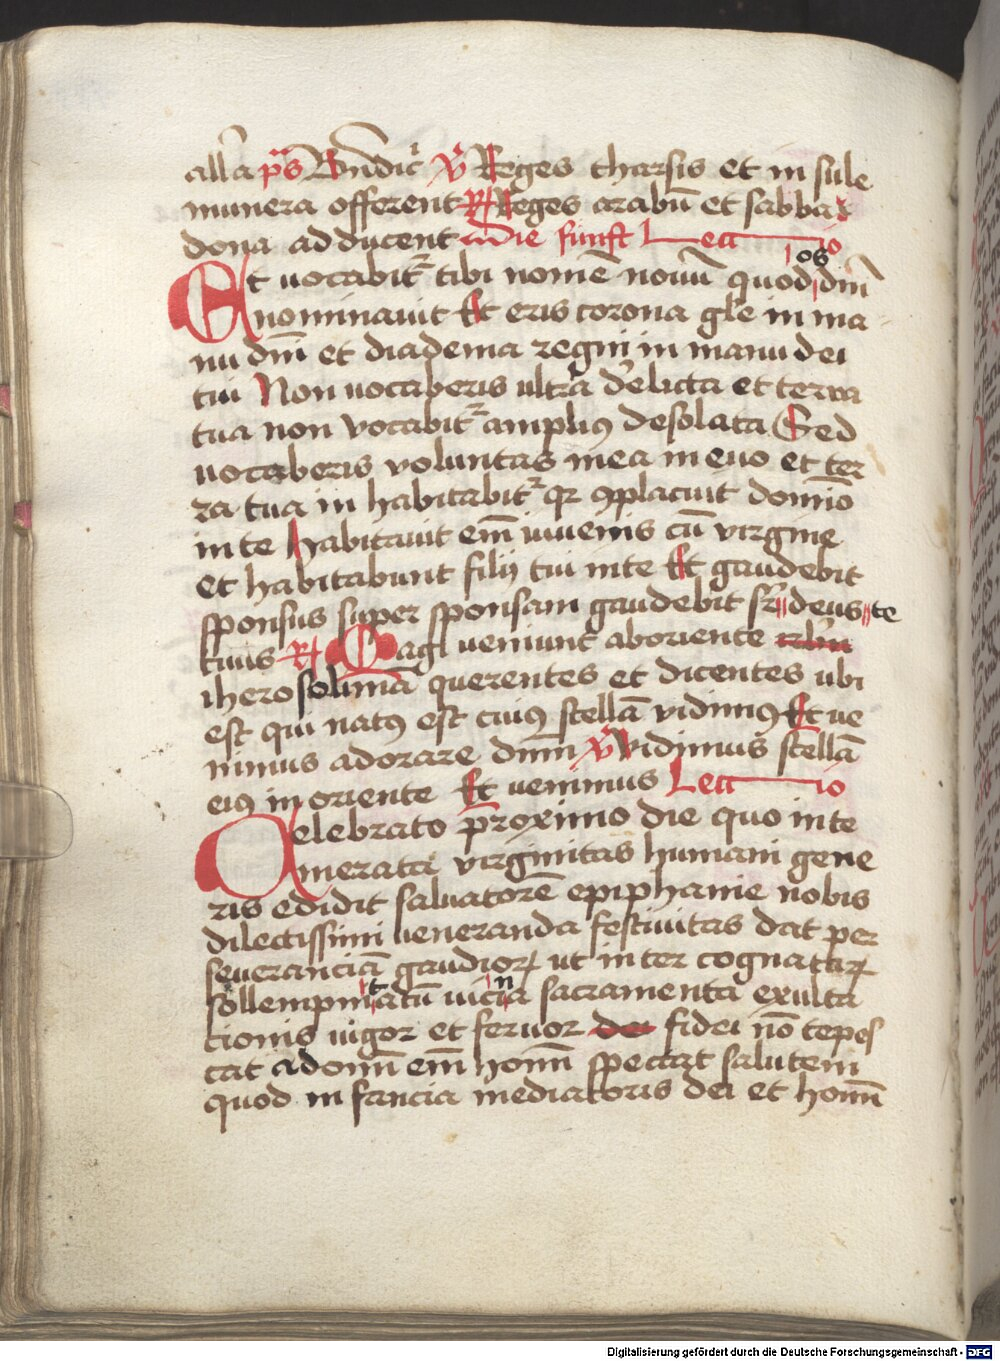 alla ps Bndic̄ V Reges tharsis et in sule
munera offerent R Reges arabū et sabba
dona ad ducent Die funft Lectio
Et vocabitr tibi nomē novū quod os dm̄
nominavit Et eris corona gl̄e in ma
nu dn̄i et diadema regni in manu dei
tui Non vocaberis ultra delicta et terra
tua non vocabitr amplius desolata Sed
vocaberis voluntas mea in evo et ter
ra tua in habitabitr qr 9placuit domīo
in te habitavit em̄ iuvenis cū virgine
et habitabunt filij tui in te Et gaudebit
sponsus super sponsam gaudebit sr̄ deus te
tuus R Magi veniunt ab oriente irlm
iherosolimā querentes et dicentes ubi
est qui natus est cuius stellā vidimus Et ve
nimus adorare dnm̄ V Vidimus stellā
eius in oriente Et venimus Lectio
Celebrato proximo die quo inte
merata virginitas humani gene
ris edidit salvatorē epiphanie nobis
dilectissimi veneranda festivitas dat per
severanciā gaudior ut inter cognatar
sollempnitatū vicina sacramenta exulta
tionis vigor et fervor dei fidei nō tepes
cat ad omn̄ em̄ homn̄ spectat salutem
quod in fancia mediatoris dei et homn̄
Digitalisierung gefördert durch die Deutsche Forschungsgemeinschaft - DFG